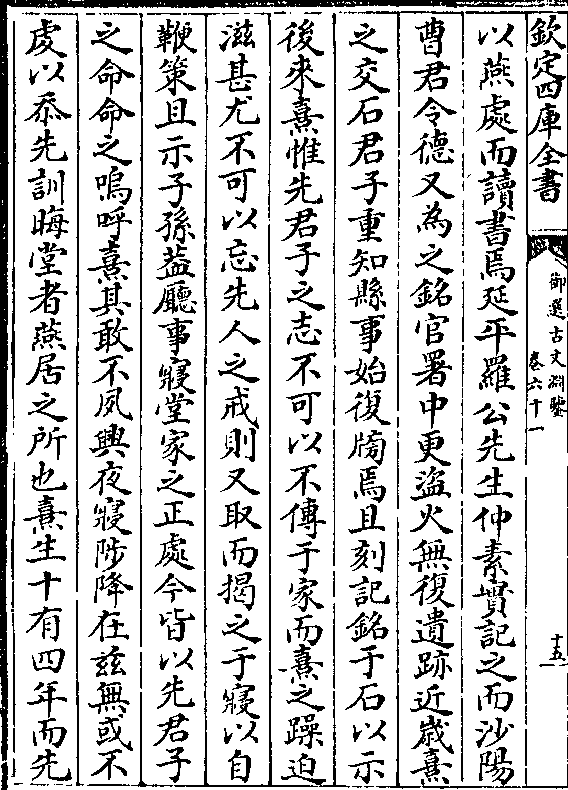 欽定四庫全書
御選古文淵鑒
卷六十一
十五
以燕處而讀書焉延平羅公先生仲素實記之而沙陽
曹君令德又為之銘官署中更盜火無復遺跡近歳熹
之交石君子重知縣事始復牓焉且刻記銘于石以示
後來熹惟先君子之志不可以不傳于家而熹之躁迫
滋甚尤不可以忘先人之戒則又取而揭之于寢以自
鞭策且示子孫葢廳事寢堂家之正處今皆以先君子
之命命之嗚呼熹其敢不夙興夜寢陟降在兹無或不
䖏以忝先訓晦堂者燕居之所也熹生十有四年而先